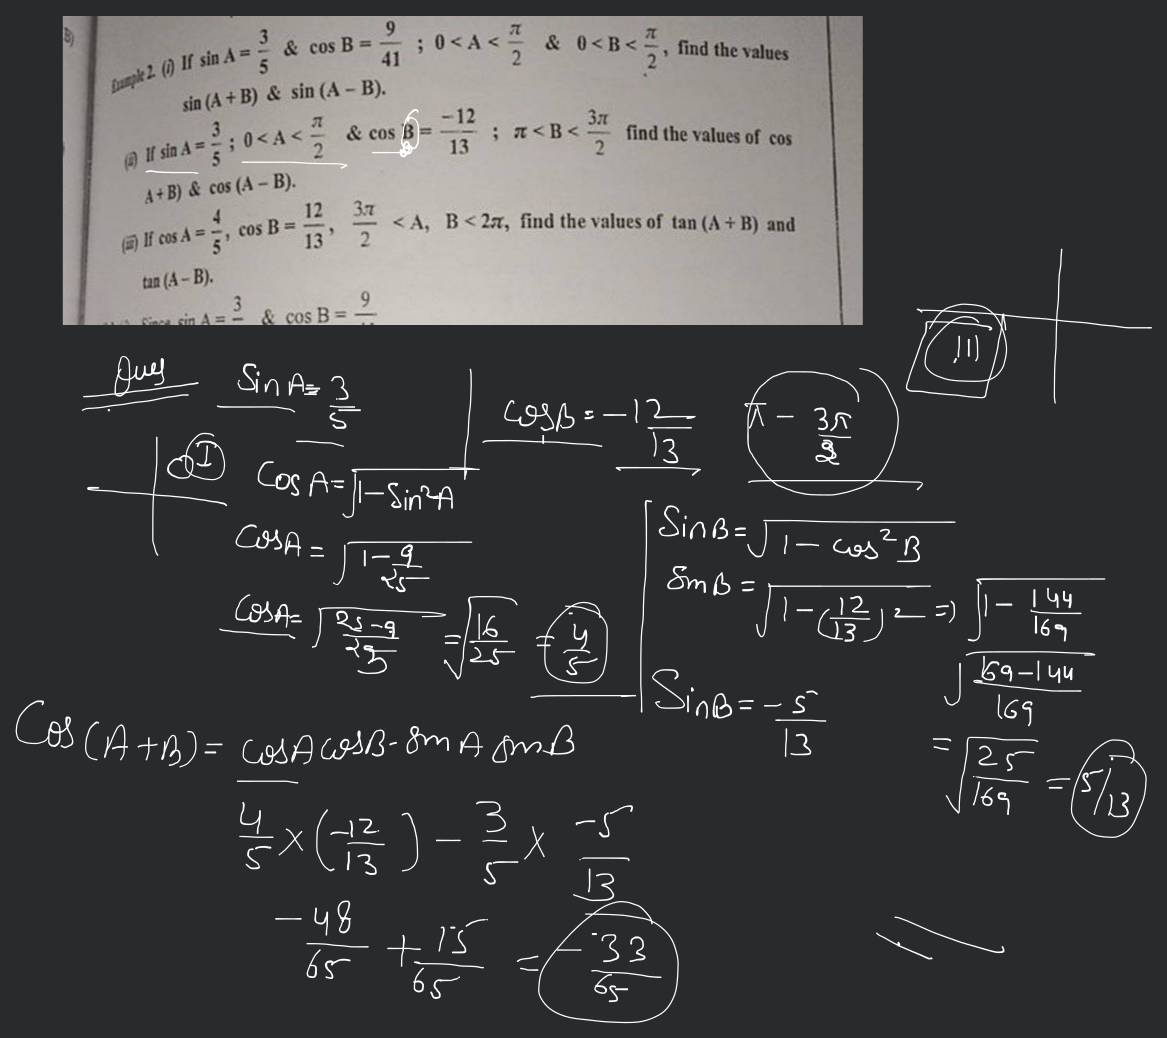 B)
Example 2. (i) If sin A = 3/5 & cos B = 9/41 ; 0 < A < π/2 & 0 < B < π/2, find the values
sin (A + B) & sin (A − B).
(ii) If sin A = 3/5 ; 0 < A < π/2 & cos B = −12/13 ; π < B < 3π/2 find the values of cos
A + B) & cos (A − B).
(iii) If cos A = 4/5, cos B = 12/13, 3π/2 < A, B < 2π, find the values of tan (A + B) and
tan (A − B).
Since sin A = 3 & cos B = 9
III
Ques
Sin A = 3/5
I
Cos A = √1 − Sin²A
CosA = √1 − 9/25
CosA = √25 − 9/25 = √16/25 = 4/5
CosB = −12/13
π − 3π/2
SinB = √1 − cos² B
SinB = √1 − (12/13)² => √1 − 144/169
√169 − 144/169
SinB = −5/13
= √25/169 = 5/13
Cos (A + B) = cosA cosB − sinA sinB
4/5 × (−12/13) − 3/5 × −5/13
−48/65 + 15/65 = −33/65